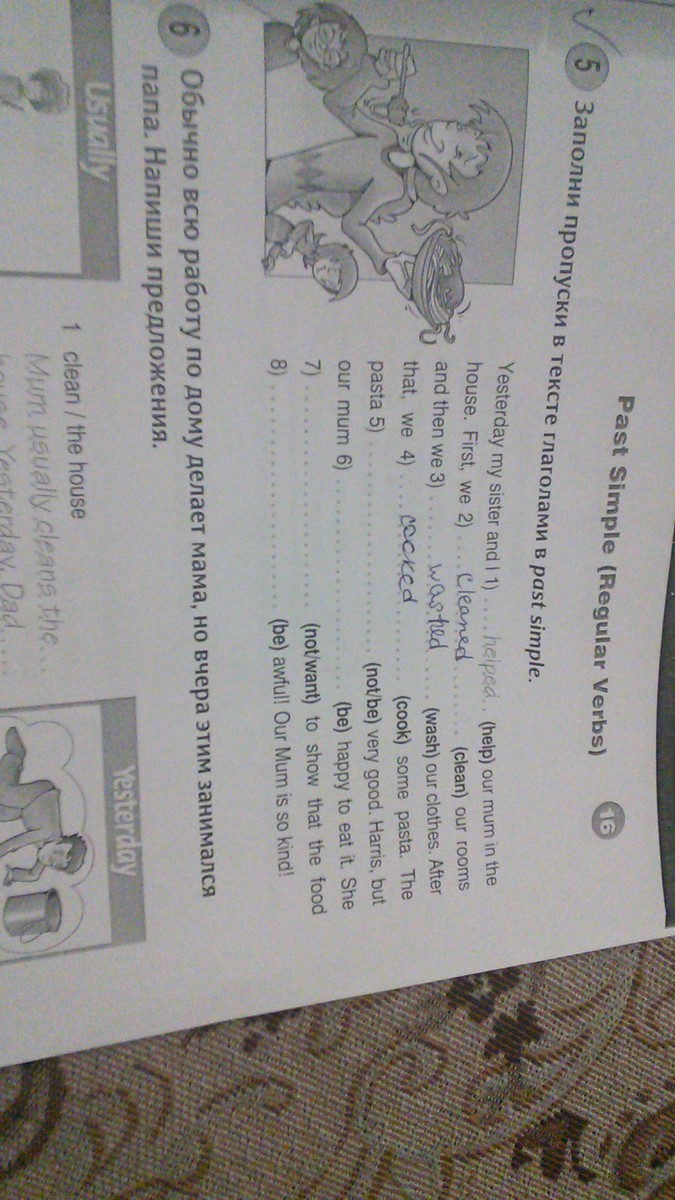 Past Simple (Regular Verbs) 16
5 Заполни пропуски в тексте глаголами в past simple.
Yesterday my sister and I 1) .... helped.. (help) our mum in the
house. First, we 2) .... cleaned ........ (clean) our rooms
and then we 3) ...... washed ..... (wash) our clothes. After
that, we 4) .... cocked ........ (cook) some pasta. The
pasta 5) ...................... (not/be) very good. Harris, but
our mum 6) ...................... (be) happy to eat it. She
7) ...................... (not/want) to show that the food
8) ...................... (be) awful! Our Mum is so kind!
6 Обычно всю работу по дому делает мама, но вчера этим занимался
папа. Напиши предложения.
Usually
Yesterday
1 clean / the house
Mum usually cleans the...
house. Yesterday, Dad.....